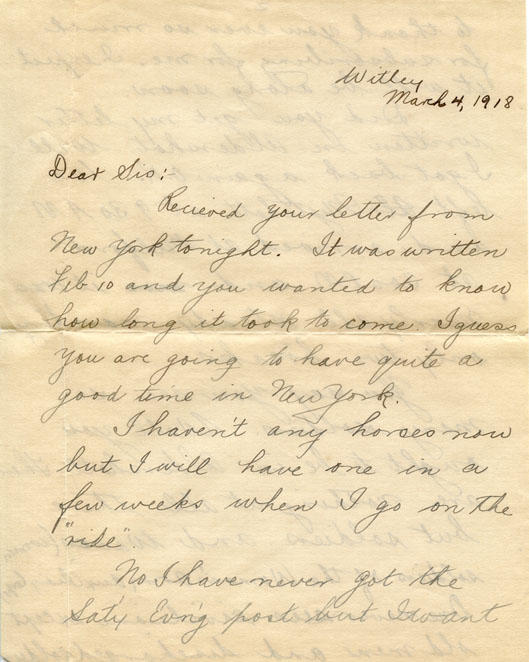 Witley
March 4, 1918
Dear Sis:-
Recieved your letter from
New York tonight. It was written
Feb 10 and you wanted to know
how long it took to come. I guess
you are going to have quite a
good time in New York.
I haven't any horses now
but I will have one in a
few weeks when I go on the
"ride".
No I have never got the
Sat'y Ev'n'g post but I want